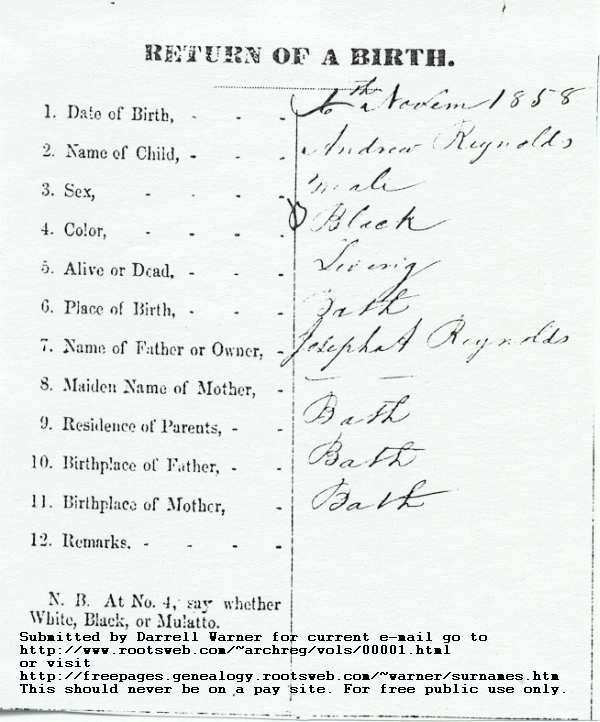 RETURN OF A BIRTH.
1. Date of Birth, - - - 6th Novem 1858
2. Name of Child, - - - Andrew Reynolds
3. Sex, - - - - male
4. Color, - - - - Black
5. Alive or Dead, - - - Living
6. Place of Birth, - - - Bath
7. Name of Father or Owner, - Joseph A Reynolds
8. Maiden Name of Mother, - — —
9. Residence of Parents, - - Bath
10. Birthplace of Father, - - Bath
11. Birthplace of Mother, - Bath
12. Remarks. - - - -
N. B. At No. 4, say whether
White, Black, or Mulatto.
Submitted by Darrell Warner for current e-mail go to
http://www.rootsweb.com/~archreg/vols/00001.html
or visit
http://freepages.genealogy.rootsweb.com/~warner/surnames.htm
This should never be on a pay site. For free public use only.